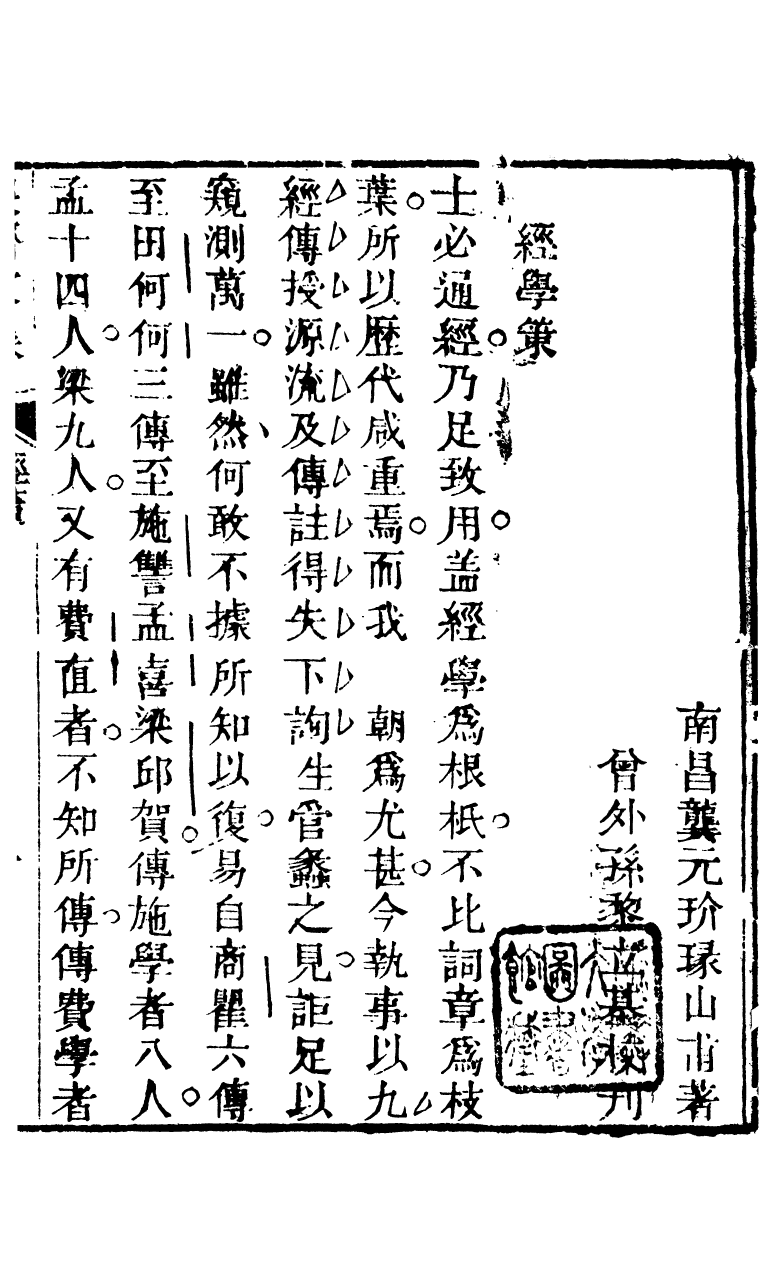 南昌龔元玠瑑山甫著
曾外孫黎立基校刊
經學策
士必通經乃足致用盖經學爲根柢不比詞章爲枝
葉所以歷代咸重焉而我　朝爲尤甚今執事以九
經傳授源流及傳註得失下詢生管蠡之見詎足以
窺測萬一雖然何敢不據所知以復易自商瞿六傳
至田何何三傳至施讐孟喜梁邱賀傳施學者八人
孟十四人梁九人又有費直者不知所傳傳費學者